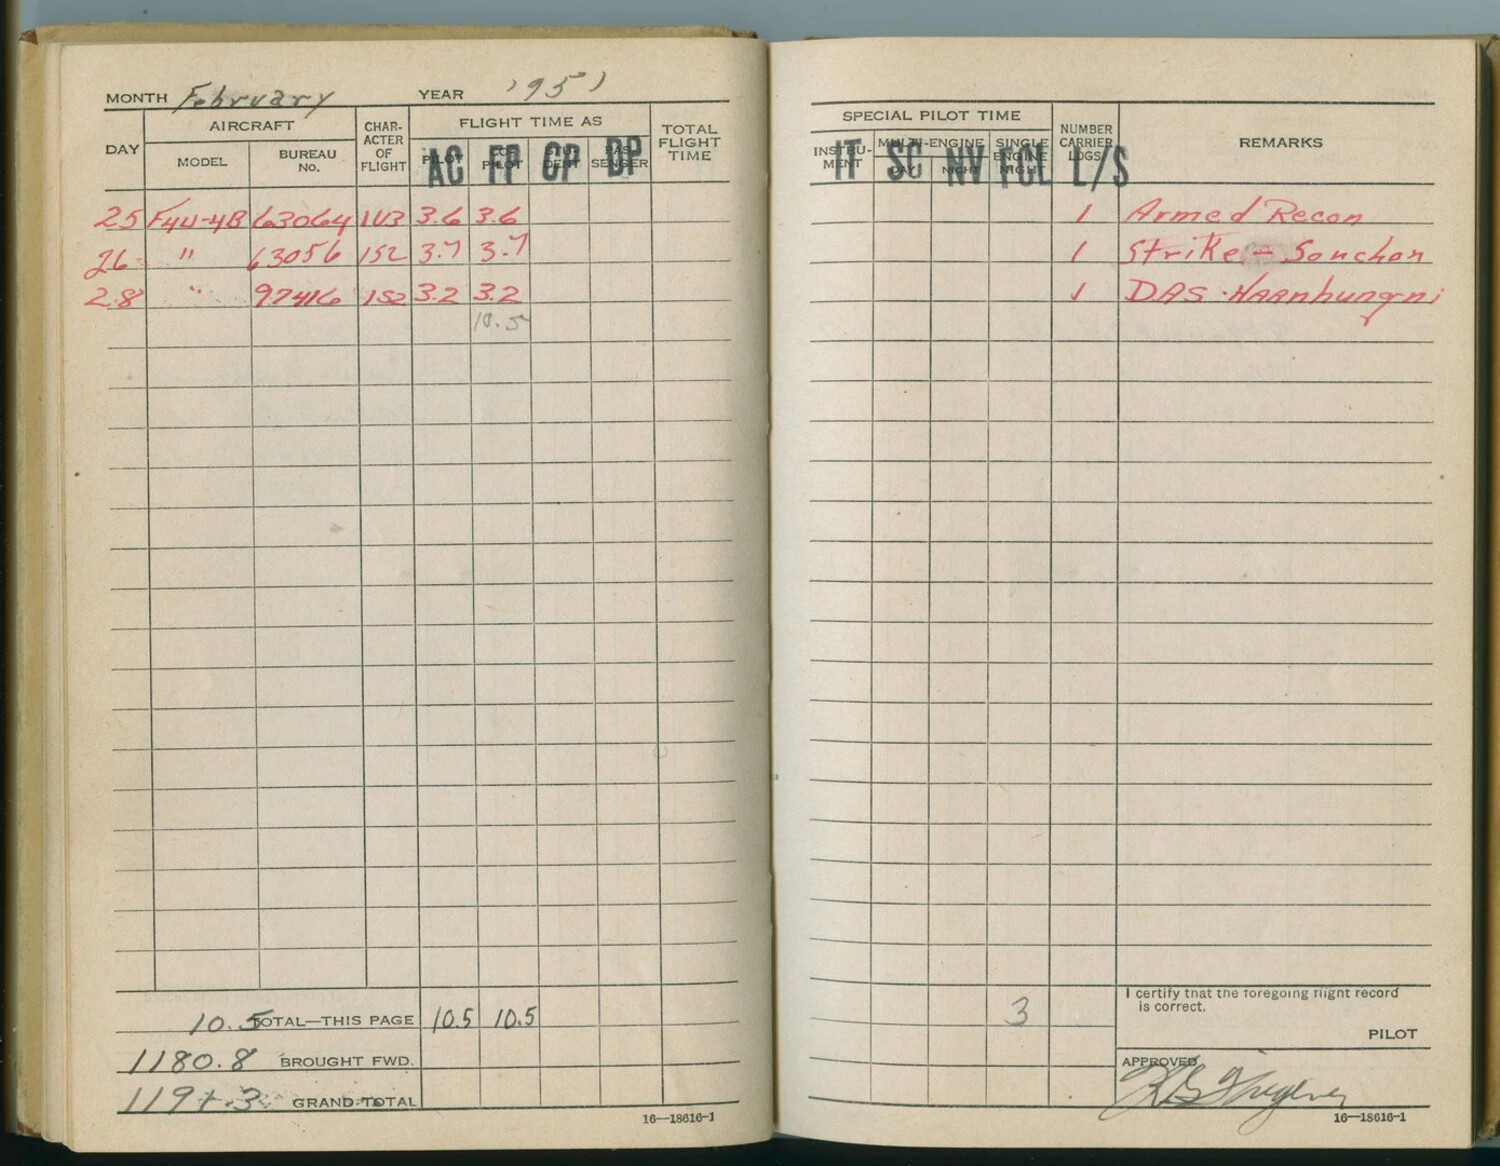 MONTH February YEAR 1951
DAY AIRCRAFT MODEL BUREAU No. CHARACTER OF FLIGHT FLIGHT TIME AS PILOT CO-PILOT STUDENT PASSENGER TOTAL FLIGHT TIME
AC FP CP DP
25 F4U-4B 63064 1U3 3.6 3.6
26 " 63056 1S2 3.7 3.7
28 " 97416 1S2 3.2 3.2
10.5
10.5 TOTAL—THIS PAGE 10.5 10.5
1180.8 BROUGHT FWD.
1191.3 GRAND TOTAL
16—18616-1
SPECIAL PILOT TIME
INSTRUMENT MULTI-ENGINE DAY NIGHT SINGLE ENGINE NIGHT NUMBER CARRIER LDGS. REMARKS
IT SC NV FCL L/S
1 Armed Recon
1 Strike - Sonchon
1 DAS - Haanhungni
3
I certify that the foregoing flight record
is correct.
PILOT
APPROVED
16—18616-1